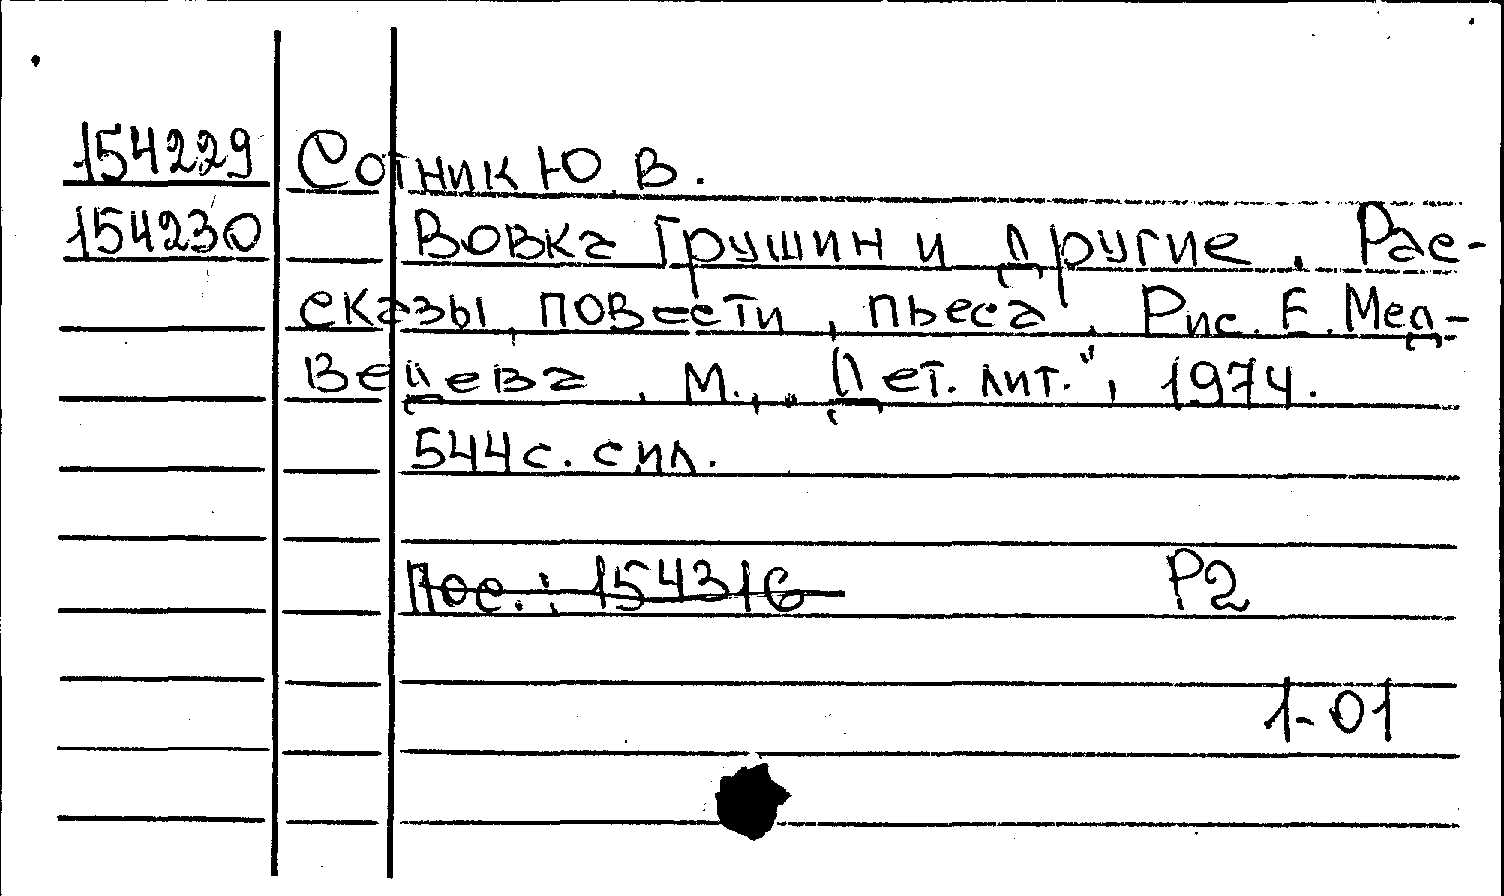 154229 Сотник Ю В.
154230 Вовка Грушин и другие. Рас-
сказы, повести, пьеса. Рис. Е. Мед-
ведева. М., „Дет. лит.", 1974.
544с. с ил.
Пос.: 154316 Р2
1-01